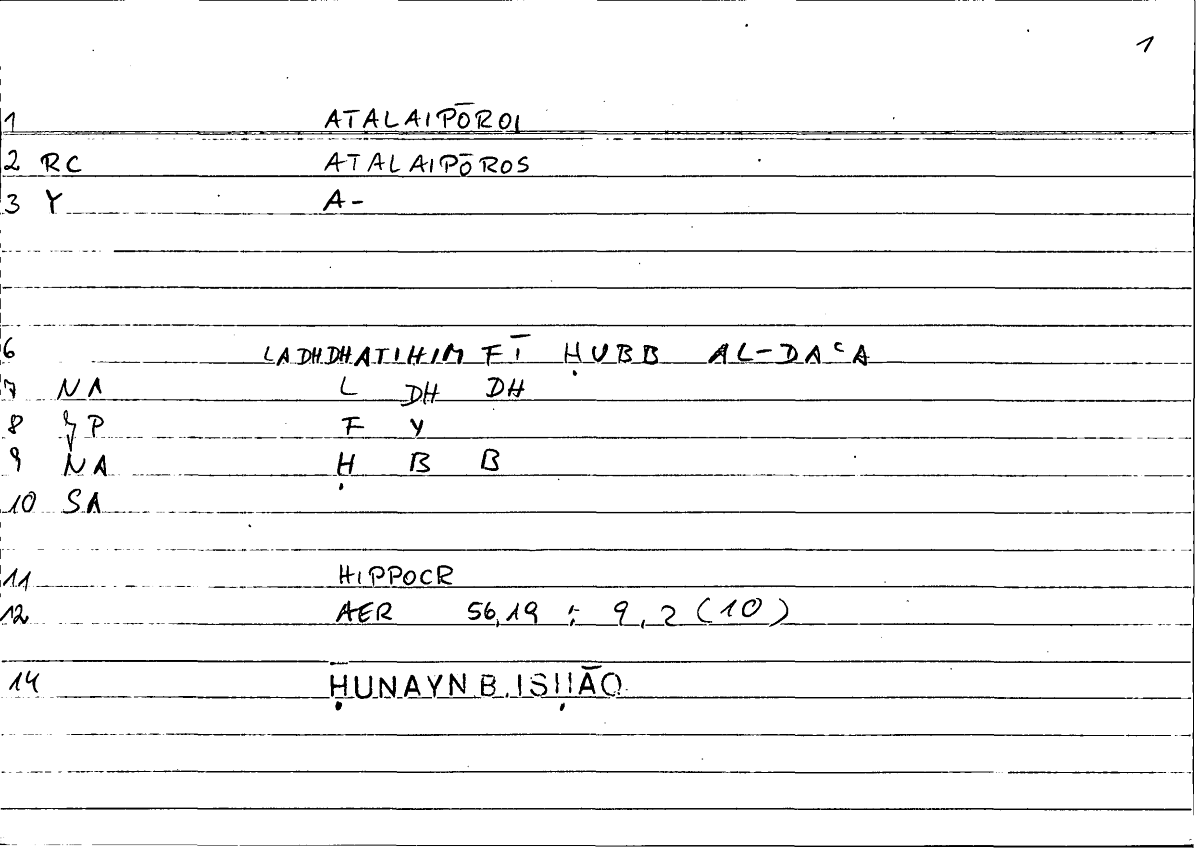 1
1 ATALAIPŌROI
2 RC ATALAIPŌROS
3 Y A-
6 LADHDHATIHIM FĪ ḤUBB AL-DAᶜA
7 NA L DH DH
8 P F Y
9 NA Ḥ B B
10 SA
11 HIPPOCR
12 AER 56,19 ; 9,2 (10)
14 ḤUNAYN B. ISḤĀQ